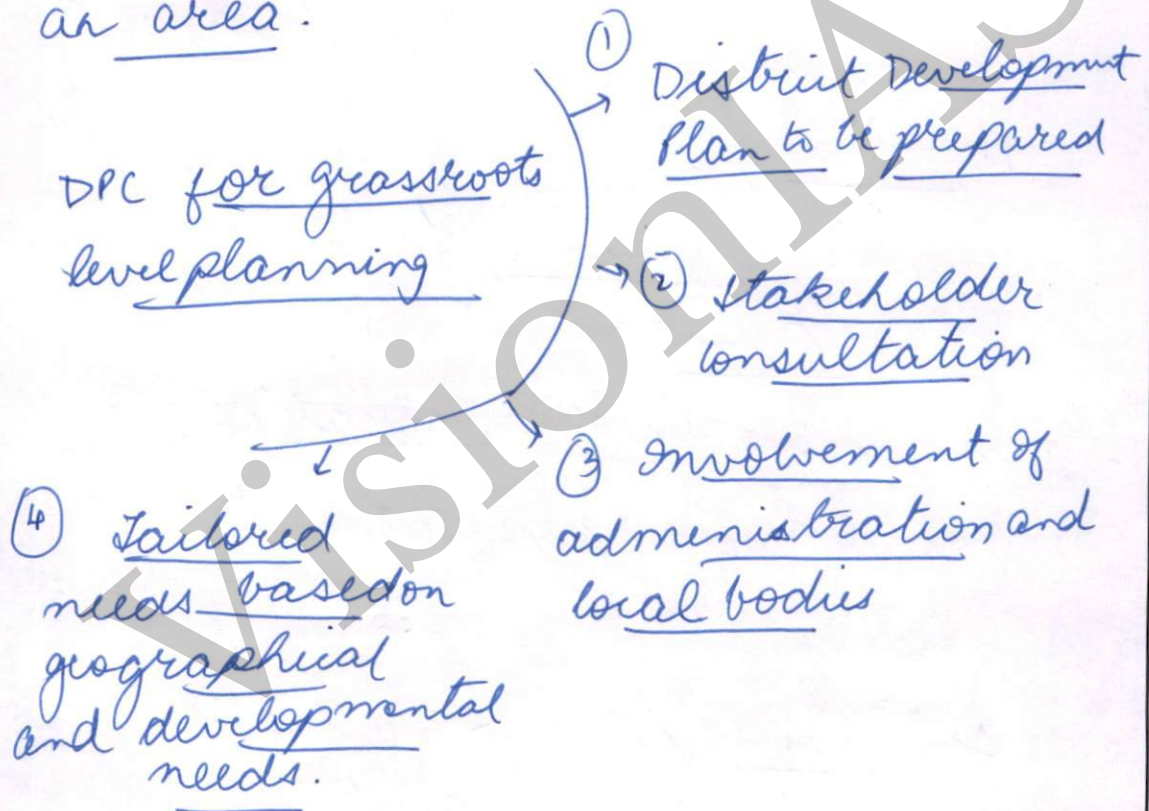 an area.
DPC for grassroots
level planning
① District Development
Plan to be prepared
→② Stakeholder
consultation
③ Involvement of
admenistration and
local bodies
④ Tailored
needs based on
geographical
and developmental
needs.
VisionIAS